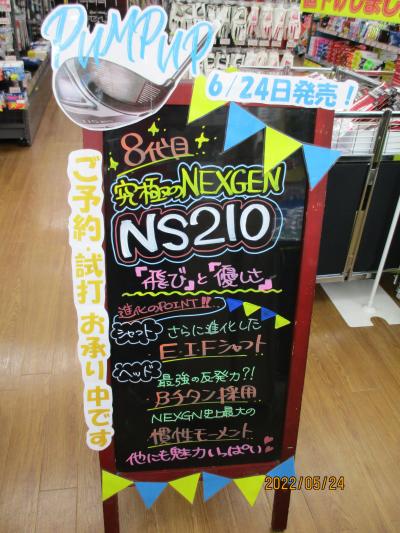 PUMP UP
6/24日発売!
ご予約・試打 お承り中です
8代目
究極のNEXGEN
NS210
「飛び」と「優しさ」
進化のPOINT!!
シャフト
さらに進化した
E.I.Fシャフト
ヘッド
最強の反発力?!
βチタン採用
NEXGN史上最大の
慣性モーメント
他にも魅力いっぱい
2022/05/24